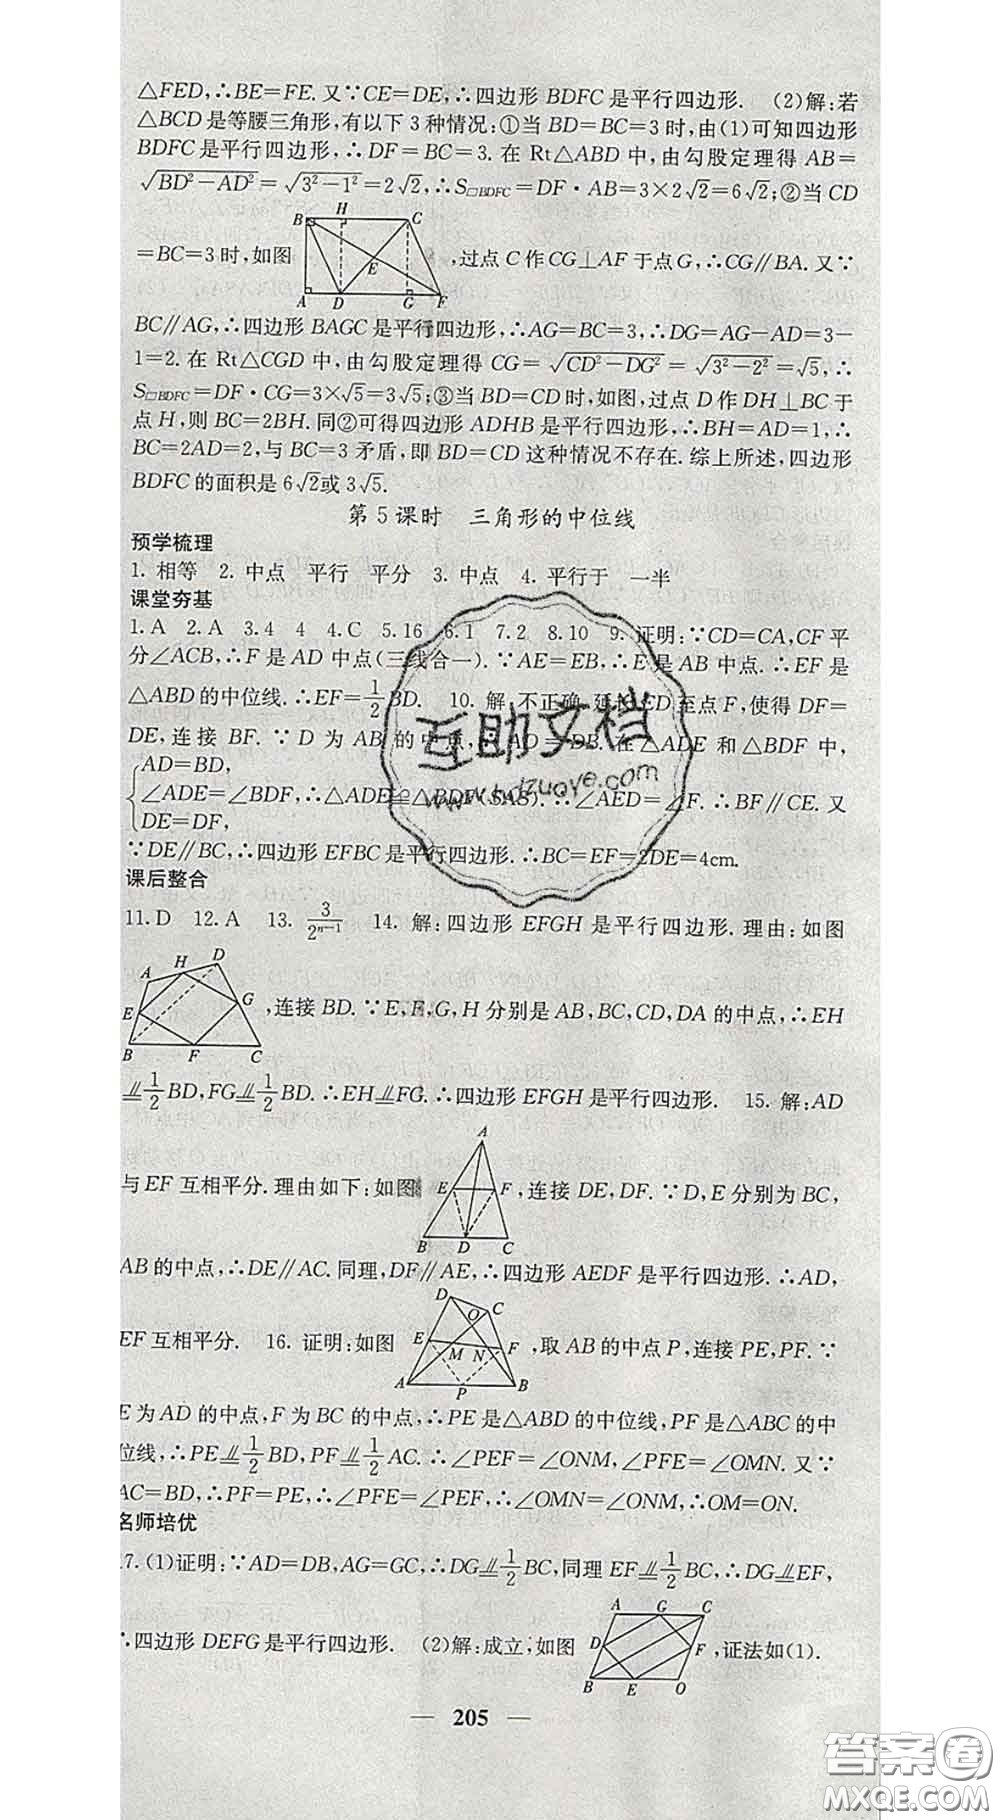 △FED,∴BE=FE.又∵CE=DE,∴四边形 BDFC 是平行四边形. (2)解:若
△BCD是等腰三角形,有以下3种情况:①当 BD=BC=3时,由(1)可知四边形
BDFC是平行四边形,∴DF=BC=3.在 Rt△ABD 中,由勾股定理得 AB=
√(BD²-AD²)=√(3²-1²)=2√2,∴S□BDFC=DF·AB=3×2√2=6√2;②当 CD
=BC=3时,如图
B H C E A D G F
,过点C作CG⊥AF于点G,∴CG∥BA.又∵
BC∥AG,∴四边形 BAGC是平行四边形,∴AG=BC=3,∴DG=AG-AD=3-
1=2.在 Rt△CGD 中,由勾股定理得 CG=√(CD²-DG²)=√(3²-2²)=√5,∴
S□BDFC=DF·CG=3×√5=3√5;③当 BD=CD时,如图,过点D作DH⊥BC于
点H,则 BC=2BH.同②可得四边形 ADHB是平行四边形,∴BH=AD=1,∴
BC=2AD=2,与BC=3矛盾,即BD=CD这种情况不存在.综上所述,四边形
BDFC的面积是6√2或3√5.
第5课时 三角形的中位线
预学梳理
1.相等 2.中点 平行 平分 3.中点 4.平行于 一半
课堂夯基
1.A 2.A 3.4 4 4.C 5.16 6.1 7.2 8.10 9.证明:∵CD=CA,CF平
分∠ACB,∴F是AD中点(三线合一).∵AE=EB,∴E是AB中点.∴EF是
△ABD的中位线.∴EF=1/2BD. 10.解:不正确.延长ED至点F,使得DF=
DE,连接 BF.∵D 为 AB 的中点,∴AD=DB.在△ADE 和△BDF 中,
AD=BD,
∠ADE=∠BDF,∴△ADE≌△BDF(SAS).∴∠AED=∠F.∴BF∥CE.又
DE=DF,
∵DE∥BC,∴四边形EFBC是平行四边形.∴BC=EF=2DE=4cm.
课后整合
11.D 12.A 13.3/2ⁿ⁻¹ 14.解:四边形 EFGH 是平行四边形.理由:如图
A H D E G B F C
,连接BD.∵E,F,G,H分别是AB,BC,CD,DA的中点,∴EH
⫽1/2BD,FG⫽1/2BD.∴EH⫽FG.∴四边形EFGH是平行四边形. 15.解:AD
与EF互相平分.理由如下:如图
A E F B D C
,连接DE,DF.∵D,E分别为BC,
AB的中点,∴DE∥AC.同理,DF∥AE,∴四边形AEDF是平行四边形.∴AD,
EF互相平分. 16.证明:如图
D O C E M N F A P B
,取AB的中点P,连接PE,PF.∵
E为AD的中点,F为BC的中点,∴PE是△ABD的中位线,PF是△ABC的中
位线,∴PE⫽1/2BD,PF⫽1/2AC.∴∠PEF=∠ONM,∠PFE=∠OMN.又∵
AC=BD,∴PF=PE,∴∠PFE=∠PEF,∴∠OMN=∠ONM,∴OM=ON.
名师培优
17.(1)证明:∵AD=DB,AG=GC,∴DG⫽1/2BC,同理EF⫽1/2BC,∴DG⫽EF,
∴四边形DEFG是平行四边形. (2)解:成立,如图
A G C D F B E O
,证法如(1).
互助文档
www.hdzuoye.com
— 205 —
答案圈
MXQE.COM